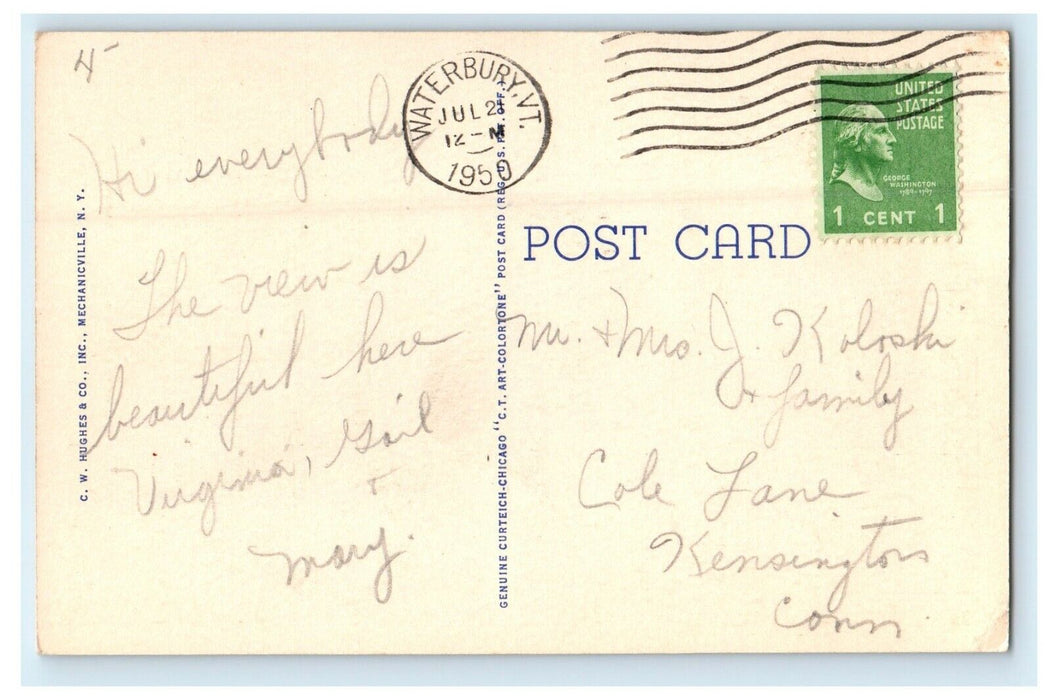 4-
WATERBURY, VT.
JUL 2
12 - M
1950
UNITED
STATES
POSTAGE
GEORGE
WASHINGTON
1789-1797
1 CENT 1
Hi everybody
The view is
beautiful here
Virginia, Gail
+
Mary.
C. W. HUGHES & CO., INC., MECHANICVILLE, N. Y.
GENUINE CURTEICH-CHICAGO "C.T. ART-COLORTONE" POST CARD (REG. U.S. PAT. OFF.)
POST CARD
Mr. + Mrs. J. Koloski
+ family
Cole Lane
Kensington
Conn